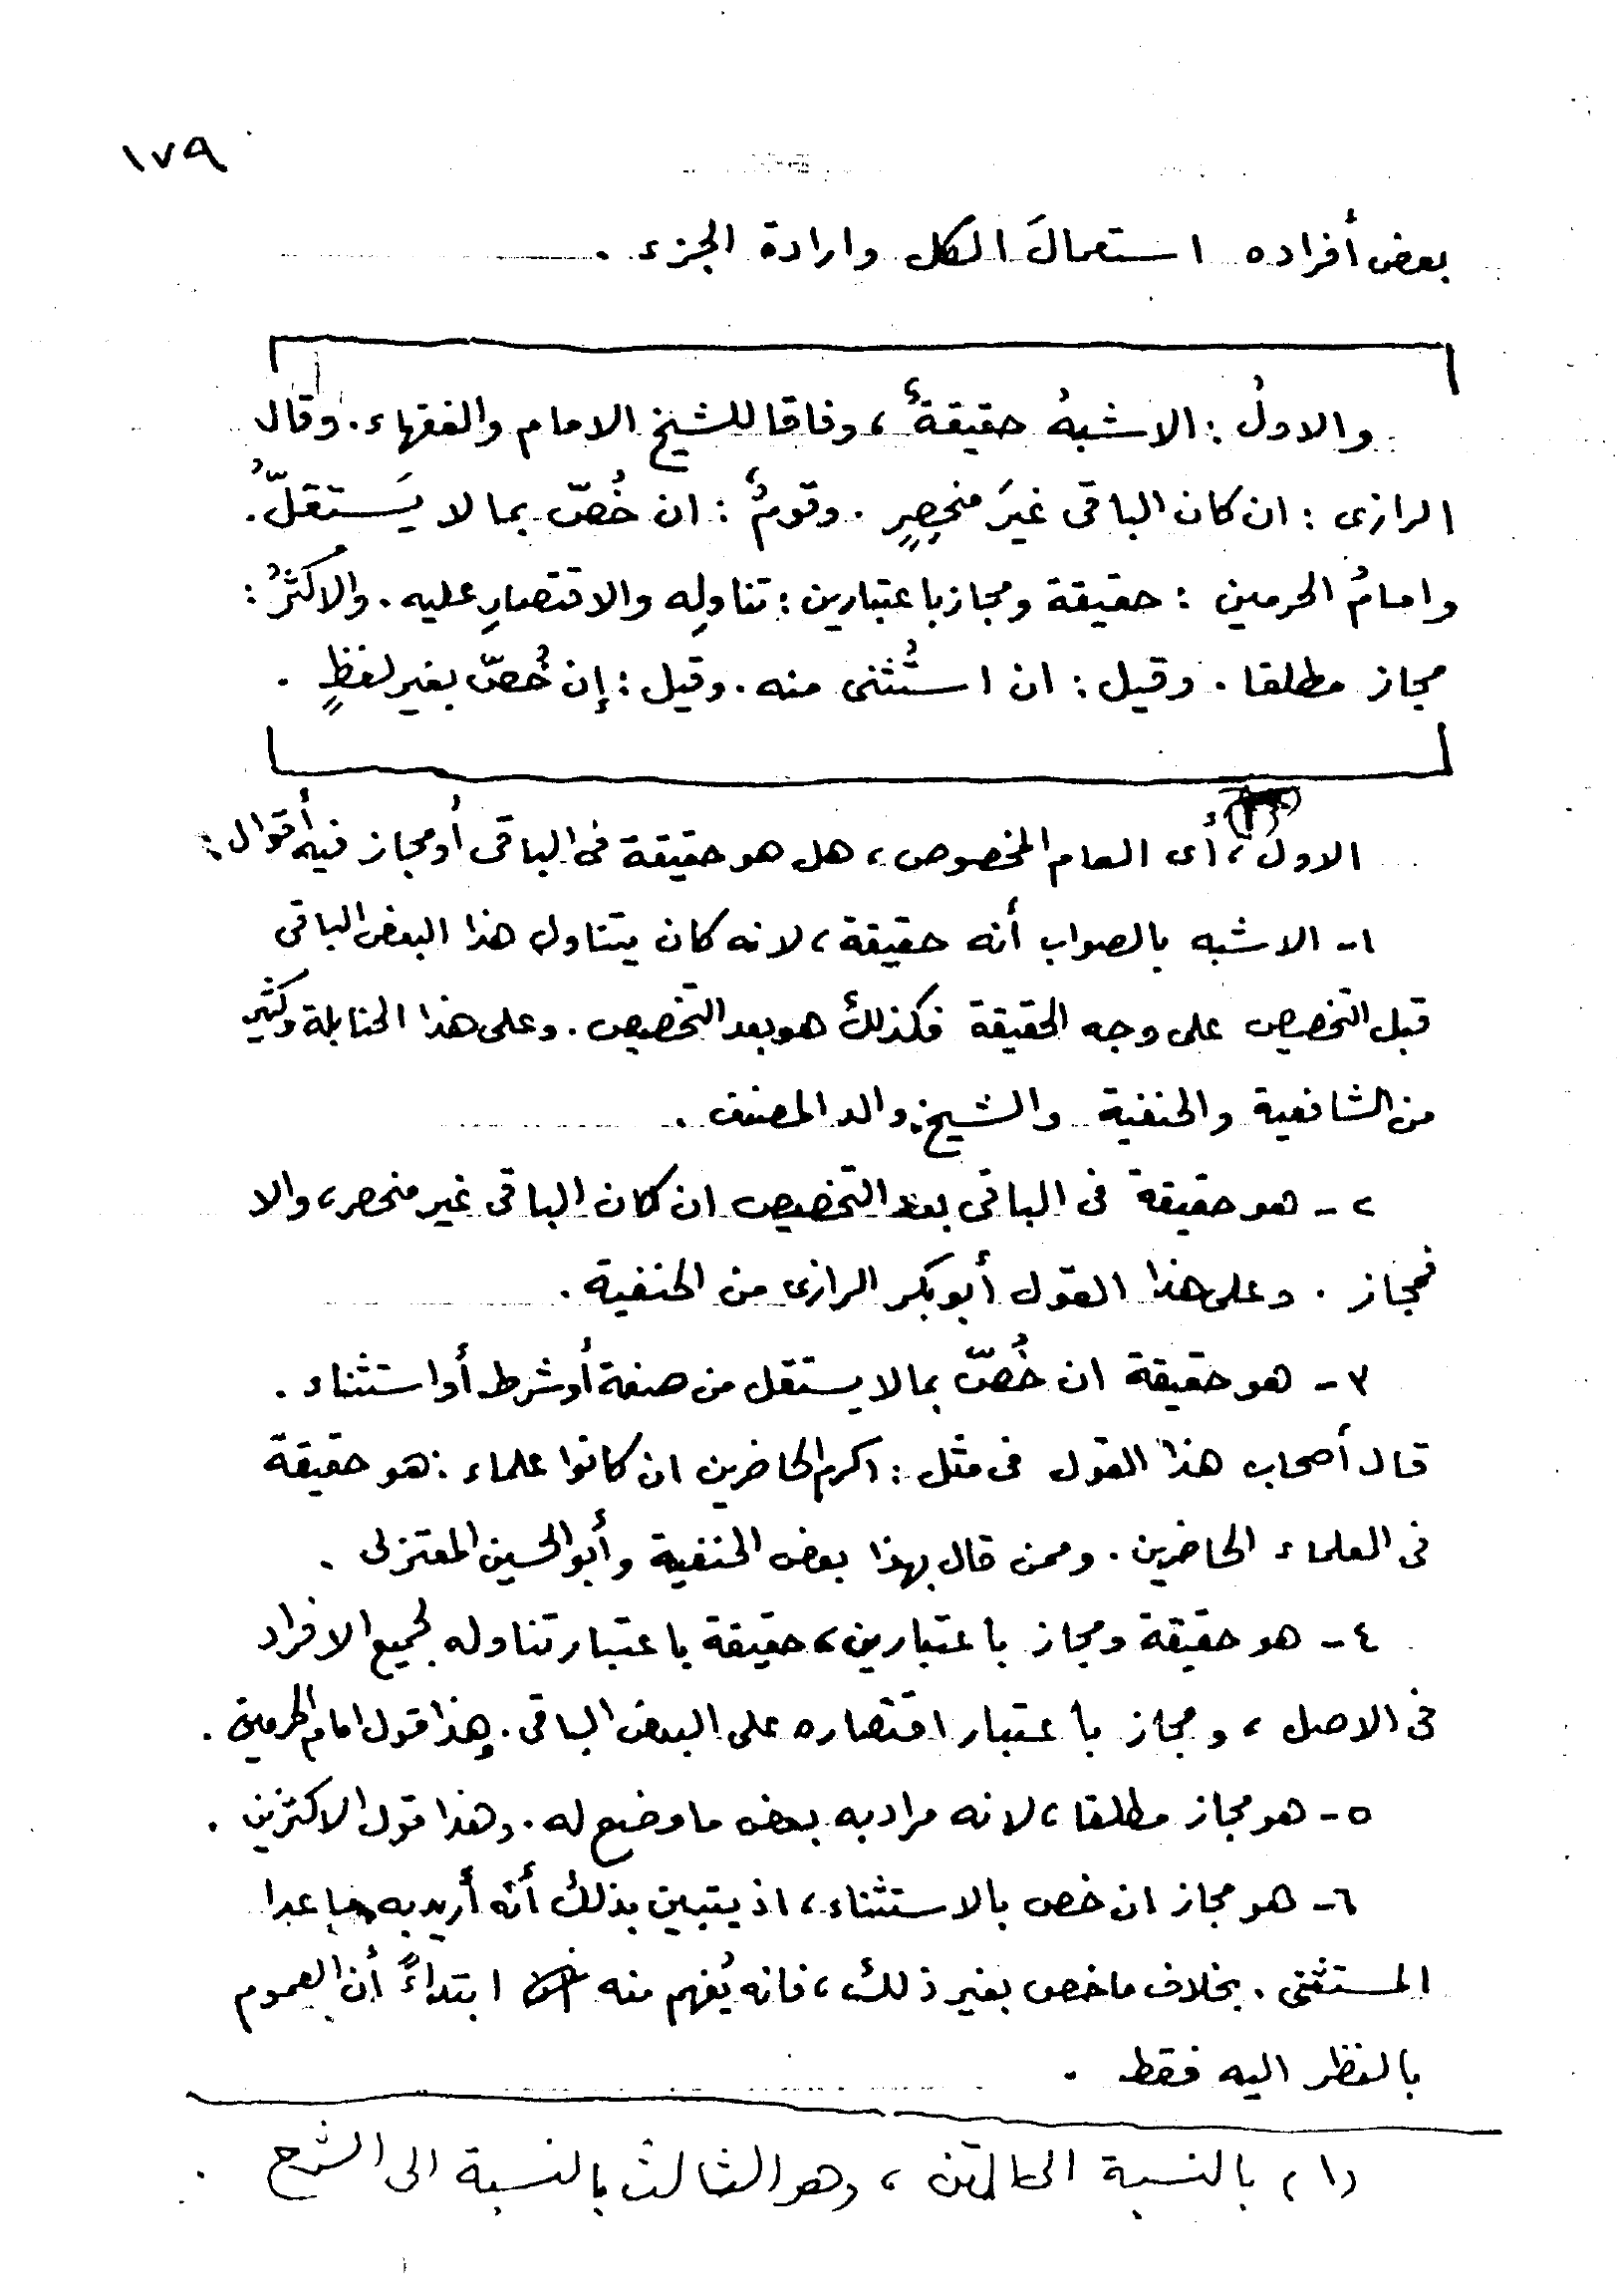 ١٧٩
بعض أفراده استعمالَ الكل وارادة الجزء .
والاولُ : الاشبهُ حقيقةٌ ، وفاقا للشيخ الامام والفقهاء . وقال
الرازى : ان كان الباقى غيرَ منحصِرٍ . وقومٌ : ان خُصّ بما لا يَستقلّ .
وامامُ الحرمين : حقيقة ومجاز باعتبارين : تناولِه والاقتصارِ عليه . والاكثرُ :
مجاز مطلقا . وقيل : ان استُثنى منه . وقيل : إن خُصّ بغير لفظٍ .
الاول (١) ، أى العام المخصوص ، هل هو حقيقة فى الباقى أو مجاز فيه أقوال :
١- الاشبه بالصواب أنه حقيقة ، لانه كان يتناول هذا البعض الباقى
قبل التخصيص على وجه الحقيقة فكذلك هو بعد التخصيص . وعلى هذا الحنابلة وكثير
من الشافعية والحنفية والشيخ والد المصنف .
٢- هو حقيقة فى الباقى بعد التخصيص ان كان الباقى غير منحصر ، والا
فمجاز . وعلى هذا القول أبو بكر الرازى من الحنفية .
٣- هو حقيقة ان خُصّ بما لا يستقل من صفة أو شرط أو استثناء .
قال أصحاب هذا القول فى مثل : اكرم الحاضرين ان كانوا علماء : هو حقيقة
فى العلماء الحاضرين . وممن قال بهذا بعض الحنفية وأبو الحسين المعتزلى .
٤- هو حقيقة ومجاز باعتبارين ، حقيقة باعتبار تناوله لجميع الافراد
فى الاصل ، ومجاز باعتبار اقتصاره على البعض الباقى . وهذا قول امام الحرمين .
٥- هو مجاز مطلقا ، لانه مراد به بعض ما وضع له . وهذا قول الاكثرين .
٦- هو مجاز ان خص بالاستثناء ، اذ يتبين بذلك أنه أريد به ما عدا
المستثنى . بخلاف ما خص بغير ذلك ، فانه يُفهم منه ابتداءً أن العموم
بالنظر اليه فقط .
(١) بالنسبة الى المتن ، وهو الثالث بالنسبة الى الشرح .